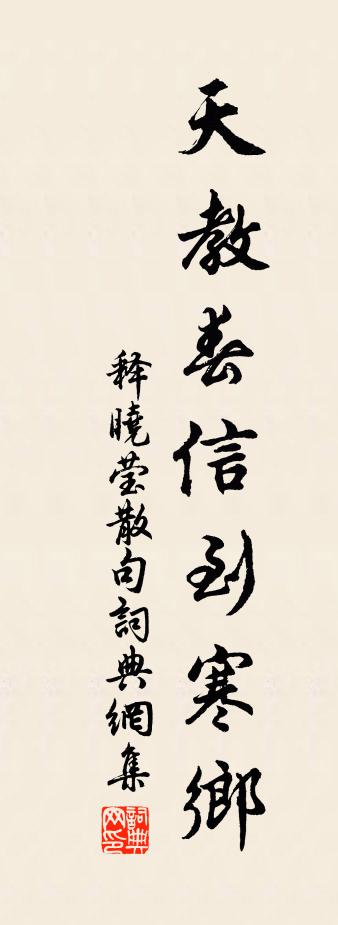 天教春信到寒鄉
释曉莹散句詞典網集
詞典網印